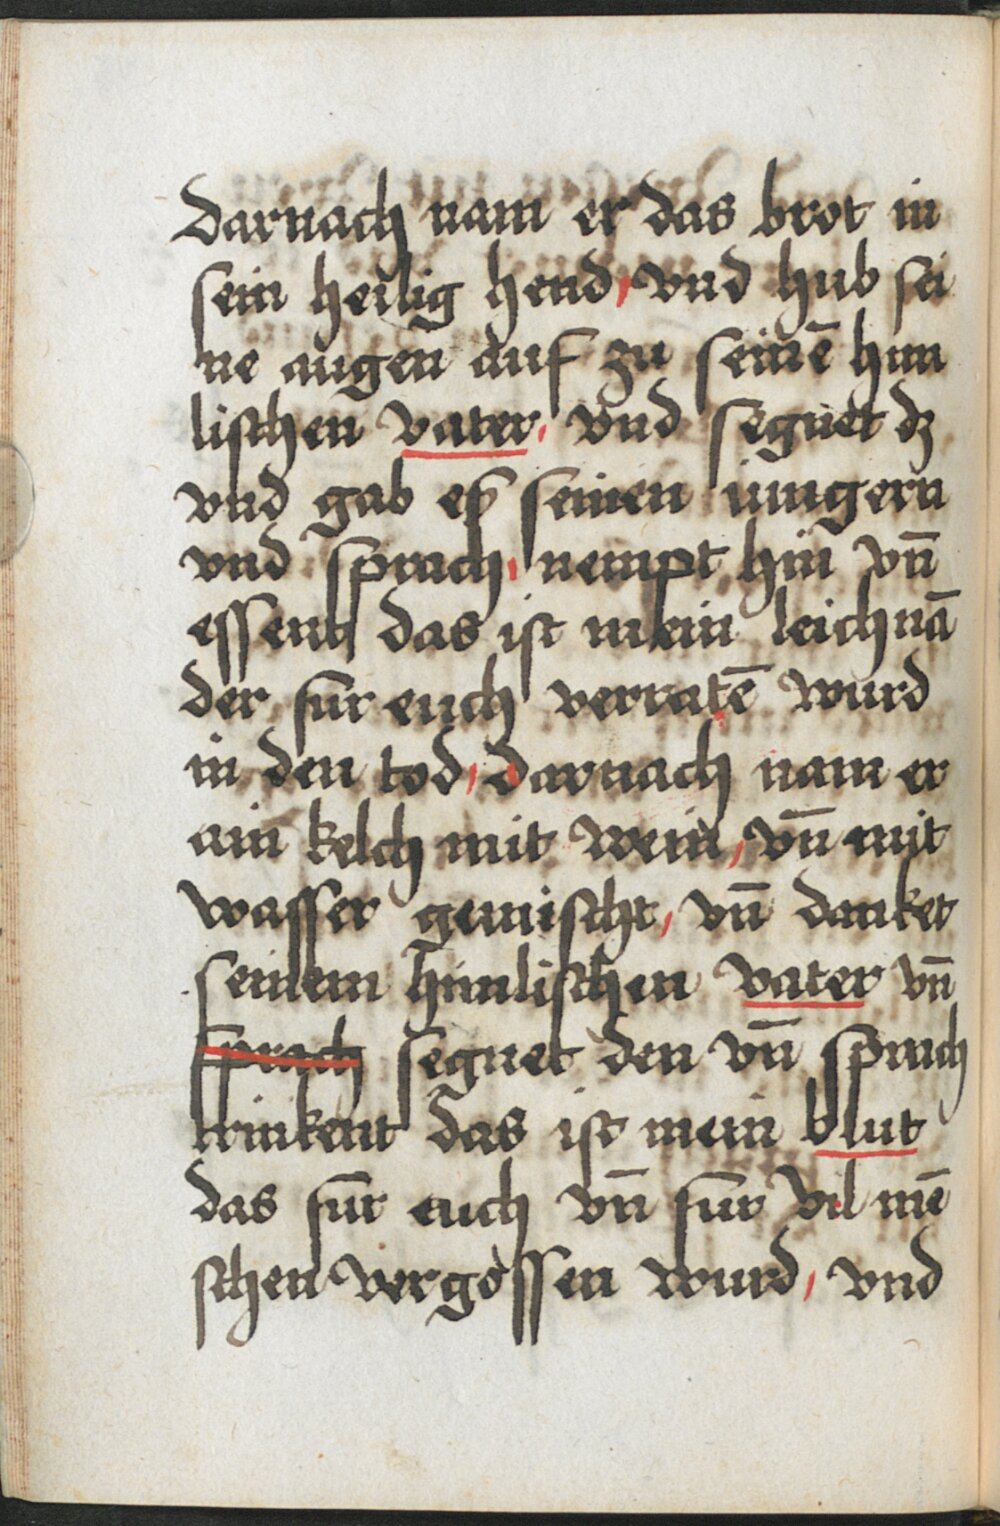 Darnach nam er das brot in
sein heilig hend, vnd hub sei
ne augen auf zu seinē him
lischen vater, vnd segnet dz
vnd gab eß seinen iungern
vnd sprach, nempt hin vn̄
essent das ist mein leichnā
der fur euch verratē wurd
in den tod, darnach nam er
ain kelch mit wein, vn̄ mit
wasser gemischt, vn̄ danket
seinem himlischen vater vn̄
sprach segnet den vn̄ sprach
trinkent das ist mein blut
das fur euch vn̄ fur vil mē
schen vergossen wurd, vnd